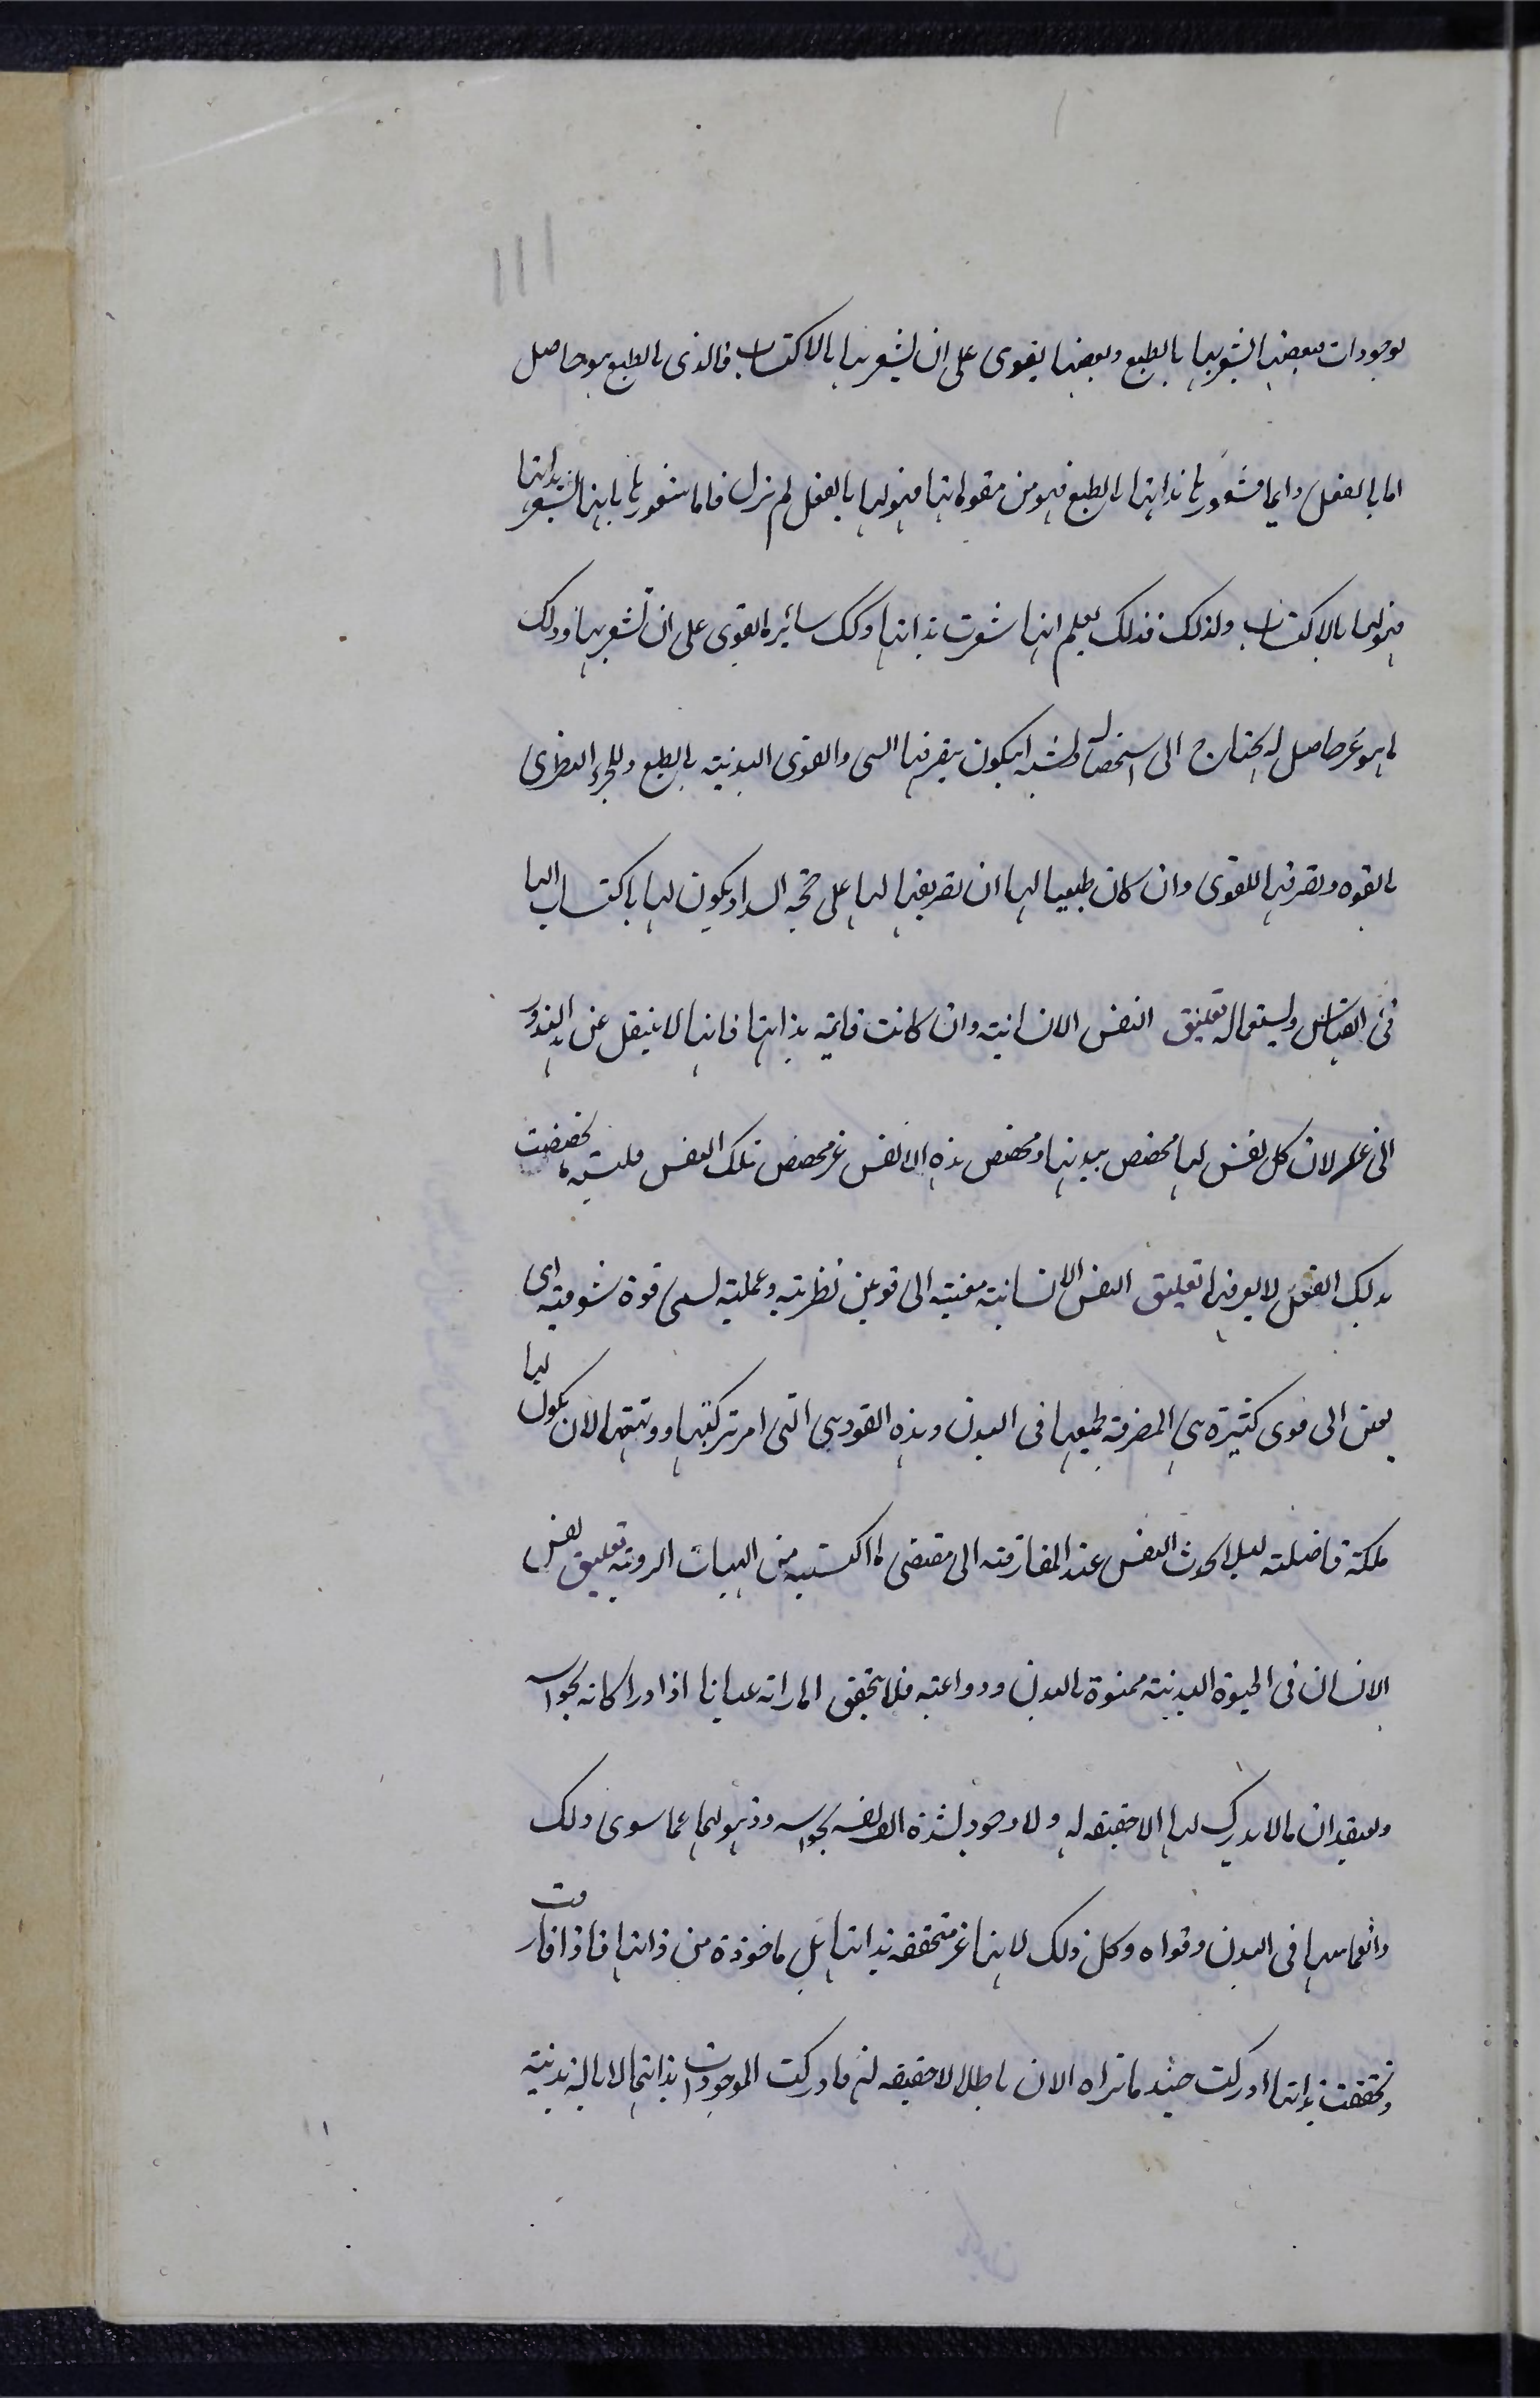 لوجودات فبعضها يشعر بها بالطبع وبعضها يقوى على ان يشعر بها بالاكتساب فالذى بالطبع هو حاصل
اما بالفعل دايما فشعورها بذاتها بالطبع فهو من مقوماتها فهو لها بالفعل لم تزل فاما شعورها بانها تشعر بذاتها
فهو لها بالاكتساب ولذلك فذلك يعلم انها شعرت بذاتها وكك سائر ما تقوى على ان تشعر بها وذلك
ما هو غير حاصل له يحتاج الى استحصاله ويشبه ان يكون تصرفها والقوى البدنية بالطبع وللجزء النظرى
بالقوه وتصرفها للقوى وان كان طبيعيا لها ان تصريفها لها على جهة السداد يكون لها باكتساب لها
فى القياس واستعماله تعليق النفس الانسانية وان كانت قايمة بذاتها فانها لا ينتقل عن هذا البدن
الى غيره لان كل نفس لها مخصص ببدنها ومخصص هذه الانفس غير مخصص تلك النفس فلنسبة ما تخصصت
بذلك البدن لا يعرفها تعليق النفس الانسانية مفننة الى قوتين نظرية وعملية تسمى قوة شوقية اى
يفتن الى قوى كثيرة هى المصرفة لجميعها فى البدن وهذه القوة هى التى امر بتزكيتها لان يكون لها
ملكة فاضلة ليلا يجذب النفس عند المفارقة الى مقتضى ما اكتسبه من الهيئات الردية تعليق نفس
الانسان فى الحيوة البدنية ممنوة بالبدن ودواعيه فلا يتحقق الا ما راته عيانا اذا دراكاته بحواسه
ويعتقد ان ما لا يدرك لها لا حقيقه له ولا وجود لشدة الفه بحواسه وذهولها عما سوى ذلك
وانغماسها فى البدن وقواه وكل ذلك لانها غير متحققه بذاتها بل ماخوذة من ذاتها فاذا فارقت
وتحققت بذاتها ادركت حينئذ ما تراه الان باطلا لا حقيقه له فادركت الموجودات بذاتها لا بآلة بدنية